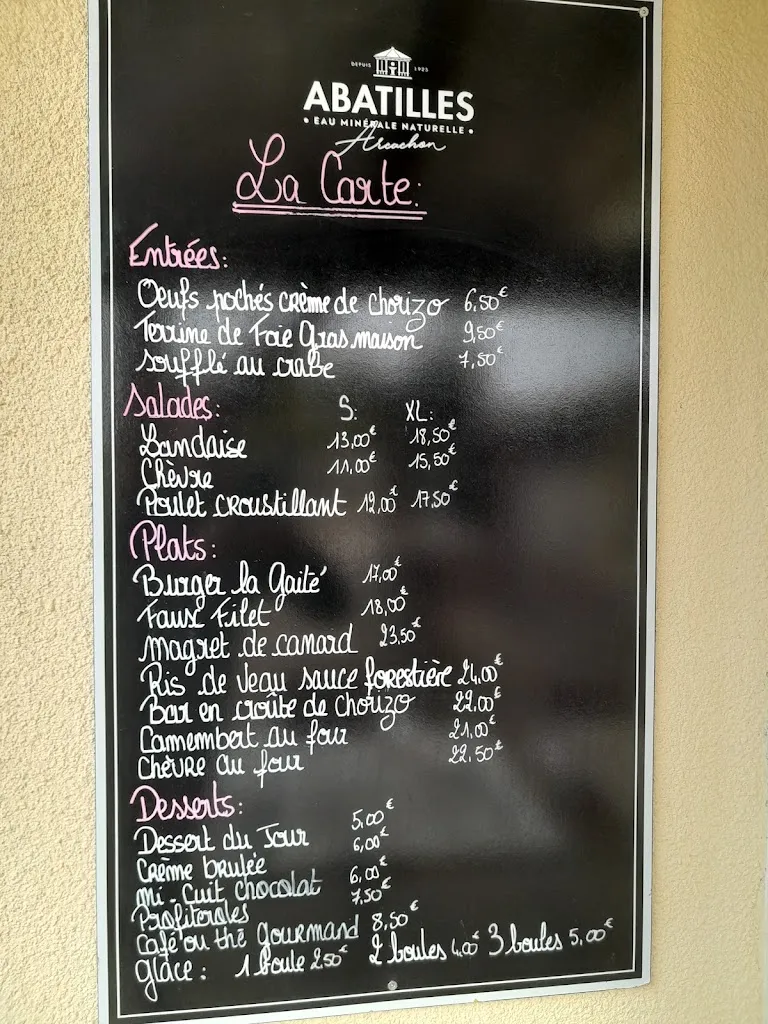 DEPUIS 1925
ABATILLES
• EAU MINÉRALE NATURELLE •
Arcachon
La Carte:
Entrées:
Oeufs pochés crème de chorizo 6,50€
Terrine de Foie Gras maison 9,50€
soufflé au crabe 7,50€
Salades: S: XL:
Landaise 13,00€ 18,50€
Chèvre 11,00€ 15,50€
Poulet croustillant 12,00€ 17,50€
Plats:
Burger la Gaité 17,00€
Faux Filet 18,00€
Magret de canard 23,50€
Ris de Veau sauce forestière 24,00€
Bar en croûte de chorizo 22,00€
Camembert au four 21,00€
Chèvre au four 22,50€
Desserts:
Dessert du Jour 5,00€
Crème brulée 6,00€
Mi-Cuit chocolat 6,00€
Profiteroles 7,50€
Café ou thé Gourmand 8,50€
Glace: 1 boule 2,50€ 2 boules 4,00€ 3 boules 5,00€